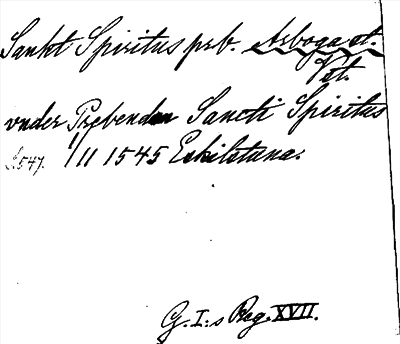 Sankt Spiritus prb. Arboga st.
Vst.
vnder Præbenden Sancti Spiritus
s. 547. 1/11 1545 Eskilstuna.
G. I:s Reg. XVII.